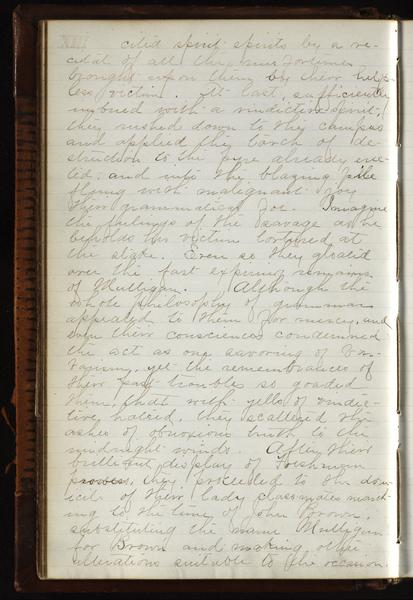 XIII
cited spirit spirits by a re-
cital of all the misfortunes
brought upon them by their help-
less victim. At last, sufficiently
imbued with a vindictive spirit,
they rushed down to the campus
and applied the torch of de-
struction to the pyre already erec-
ted and into the blazing pile
flung with malignant joy
their grammatical foe. Imagine
the feelings of the savage as he
beholds his victim tortured at
the stake. Even so they gloated
over the fast expiring remains
of Mulligan. Although the
whole philosophy of grammar
appealed to them for mercy, and
even their consciences condemned
the act as one savoring of Van-
dalism, yet the remembrances of
their past troubles so goaded
them, that with yells of vindic-
tive hatred, they scattered the
ashes of obnoxious truth to the
midnight winds. After their
brilliant display of Freshman
prowess, they proceeded to the dom-
icile of their lady classmates march-
ing to the tune of John Brown,
substituting the name Mulligan
for Brown and making other
alterations suitable to the occasion.